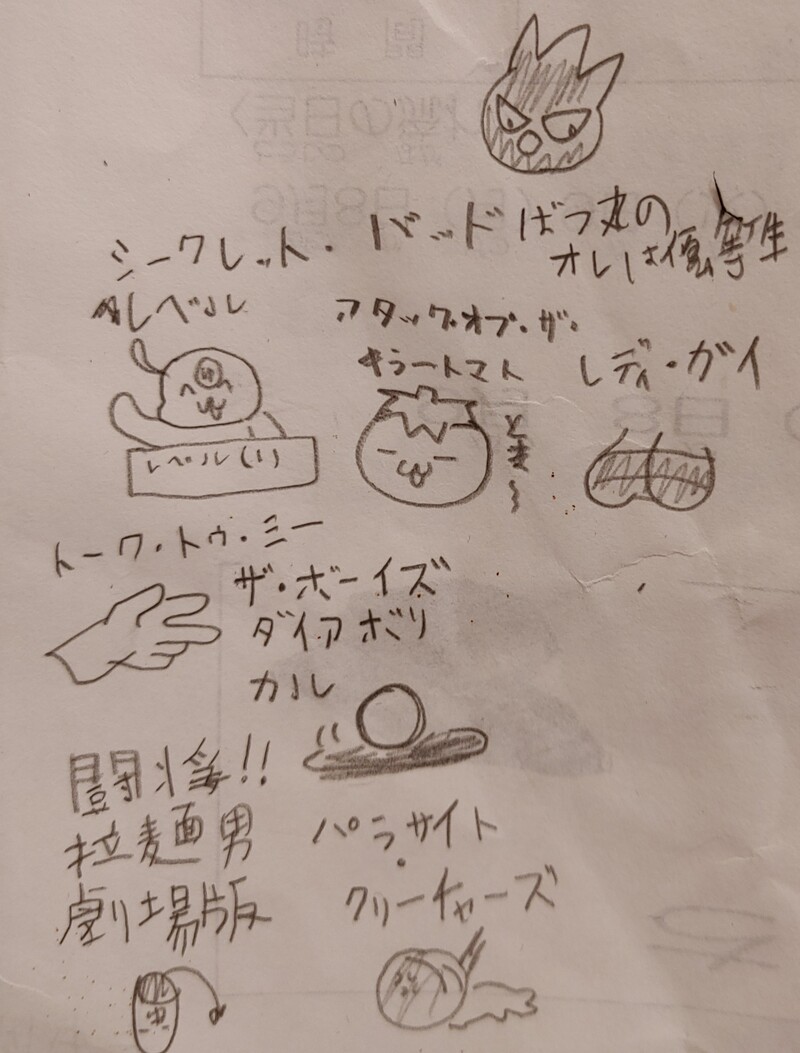 シークレット・バッドばつ丸の
オレは優等生
レベル
アタック・オブ・ザ・
キラートマト
とま~
レディ・ガイ
レベル(1)
トーク・トゥ・ミー
ザ・ボーイズ
ダイアボリ
カル
闘将!!
拉麺男
劇場版
パラサイト
・
クリーチャーズ